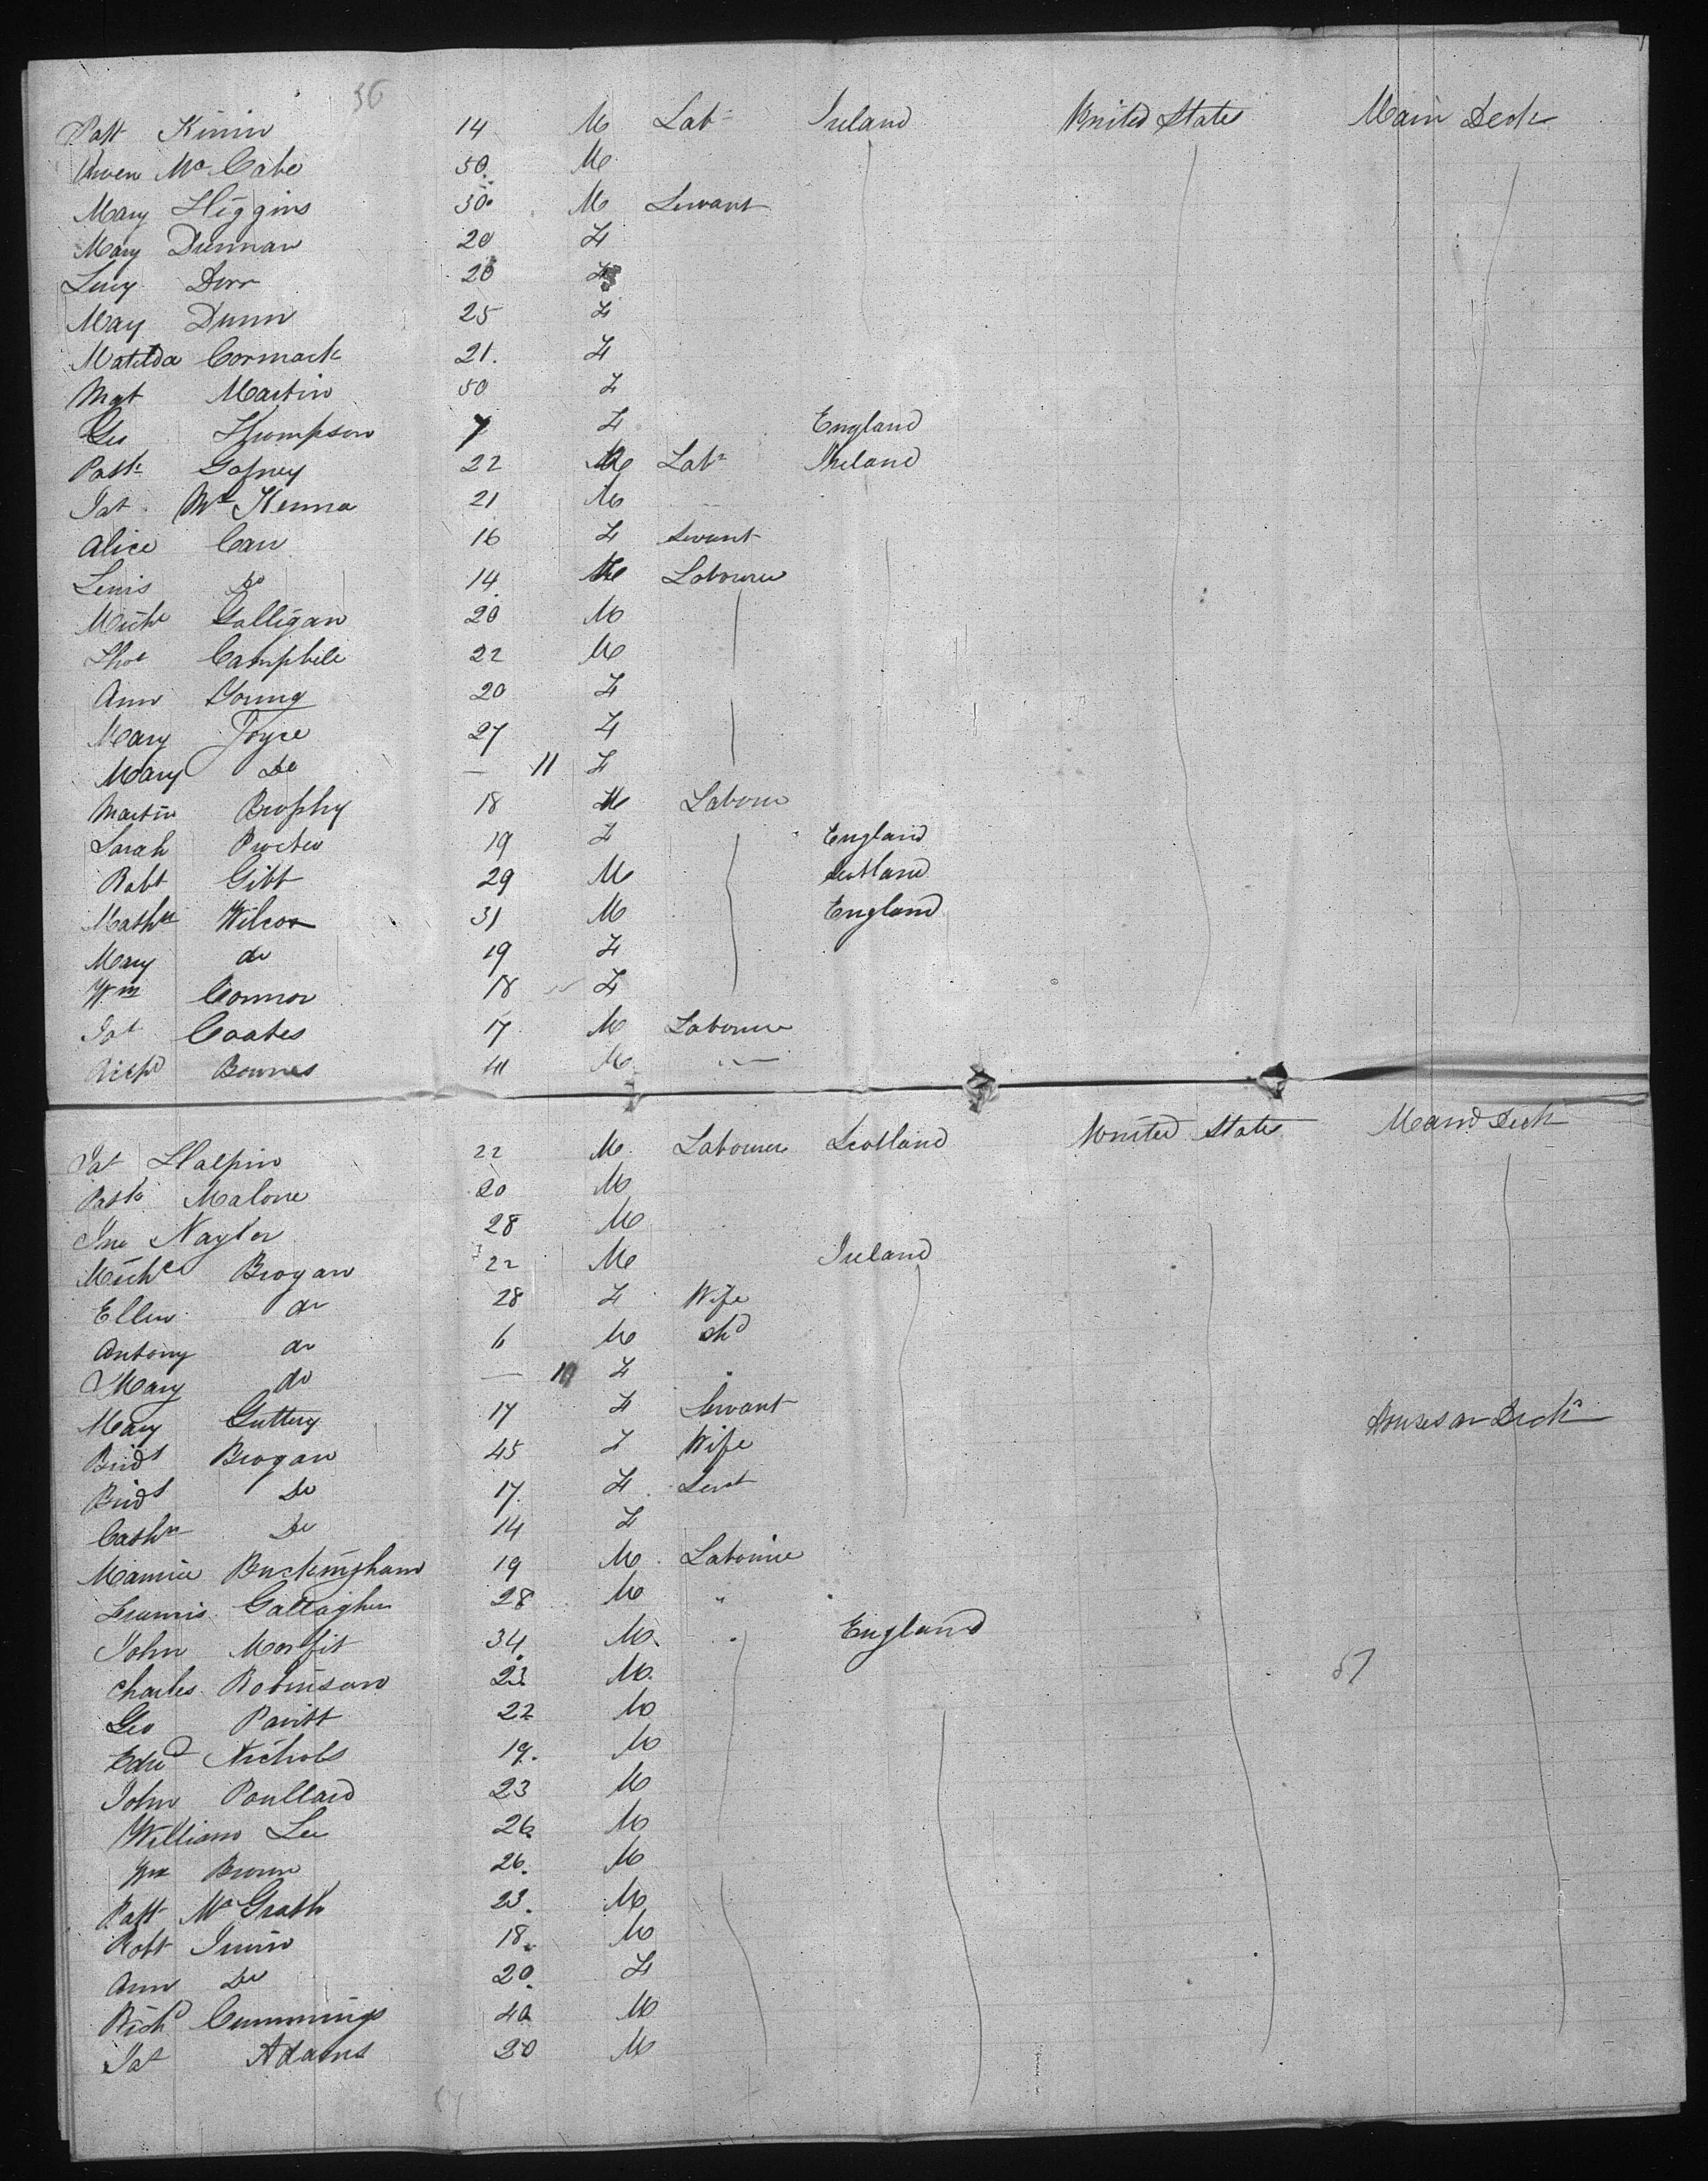 36
Patt Kinin 14 M Labr Ireland United States Main Deck
Owen McCabe 50 M
Mary Higgins 30 M Servant
Mary Dunnan 20 F
Lucy Dorr 20 F
May Dunn 25 F
Matilda Cormack 21. F
Mgt Martin 50 F
Geo Thompson 7 F England
Pattk Gafney 22 M Labr Ireland
Jas McKenna 21 M
Alice Carr 16 F Servant
Lewis Do 14 M Labourer
Michl Galligan 20 M
Thos Campbell 22 M
Ann Young 20 F
Mary Joyce 27 F
Mary Do — 11 F
Martin Brophy 18 M Labour
Sarah Procter 19 F England
Robt Gibb 29 M Scotland
Mathw Wilcox 31 M England
Mary do 19 F
Wm Connor 18 F
Jas Coates 17 M Labourer
Richd Bownes 41 M
Jas Halpin 22 M Labourer Scotland United States Main Deck
Patk Malone 20 M
Jno Naylor 28 M
Michl Brogan 22 M Ireland
Ellen do 28 F Wife
Antony do 6 M chd
Mary do — F "
Mary Guttery 17 F Servant Houses on Deck
Bridt Brogan 45 F Wife
Bridt Do 17. F Servt
Cathn Do 14 F
Maurice Buckingham 19 M Labourer
Francis Gallagher 28 M "
John Morfit 34 M " England
Charles Robinson 23 M 57
Geo Pavitt 22 M
Edwd Nichols 19. M
John Poullard 23 M
William Lee 26 M
Wm Brown 26. M
Patt McGrath 23. M
Robt Irwin 18. M
Ann Do 20. F
Richd Cummings 40 M
Jas Adams 20 M